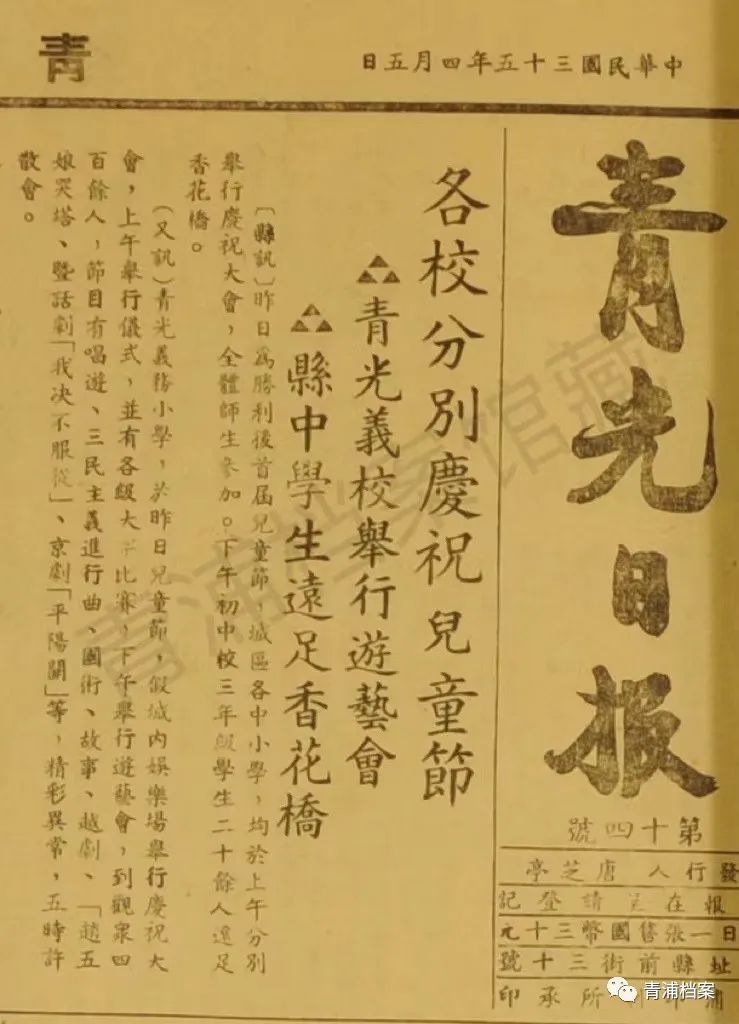 青
中華民國三十五年四月五日
青光日报
第十四號
發行人 唐芝亭
報在 請登記
日一張售國幣三十元
址縣前街三十號
印 所承印
各校分別慶祝兒童節
青光義校舉行遊藝會
縣中學生遠足香花橋
〔縣訊〕昨日爲勝利後首屆兒童節，城區各中小學，均於上午分別
舉行慶祝大會，全體師生參加。下午初中校三年級學生二十餘人遠足
香花橋。
（又訊）青光義務小學，於昨日兒童節，假城內娛樂場舉行慶祝大
會，上午舉行儀式，並有各級大 比賽，下午舉行遊藝會，到觀眾四
百餘人，節目有唱遊、三民主義進行曲、國術、故事、越劇、「趙五
娘哭塔、暨話劇「我决不服從」、京劇「平陽關」等，精彩異常，五時許
散會。
青浦档案馆藏
青浦档案